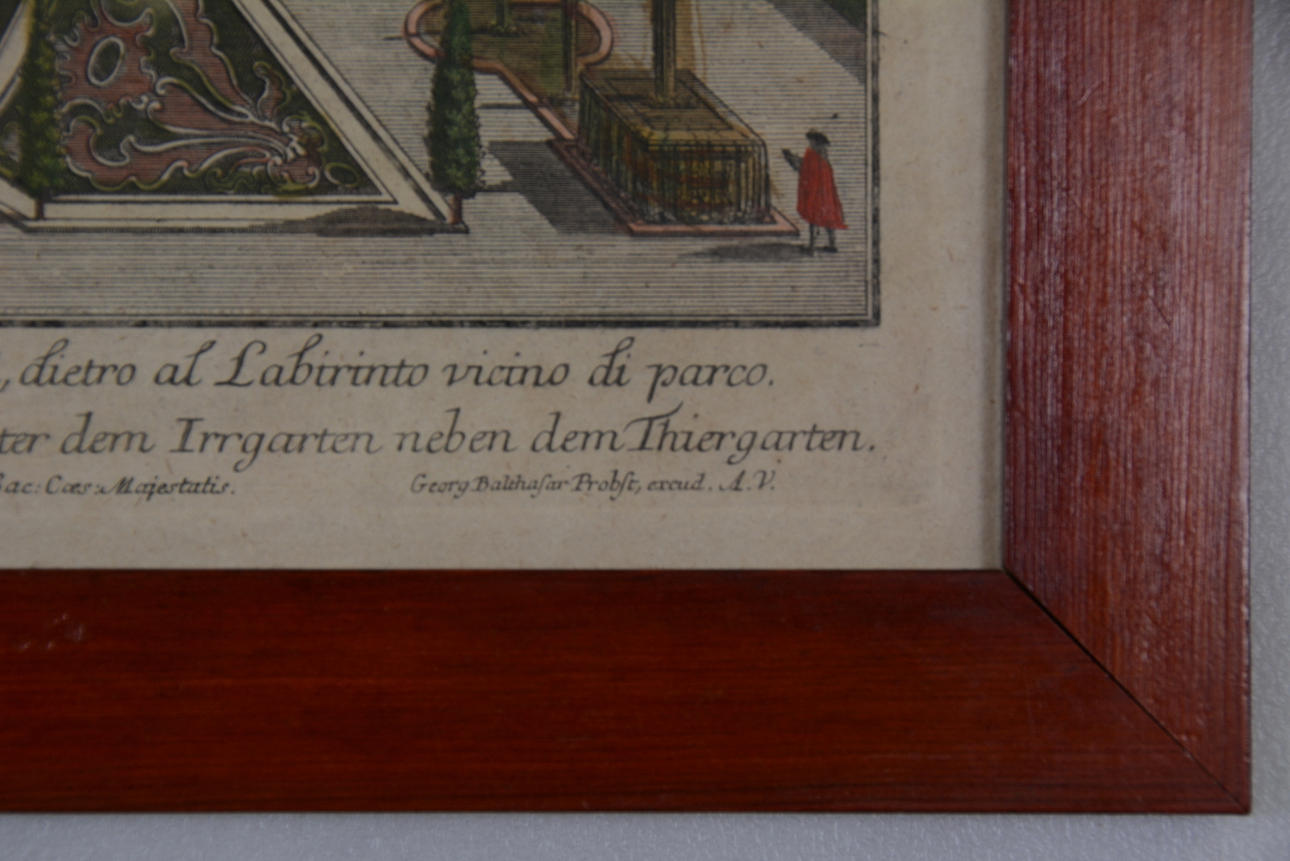 , dietro al Labirinto vicino di parco.
ter dem Irrgarten neben dem Thiergarten.
Sac: Cæs: Majestatis. Georg Balthaſar Probſt, excud. A.V.